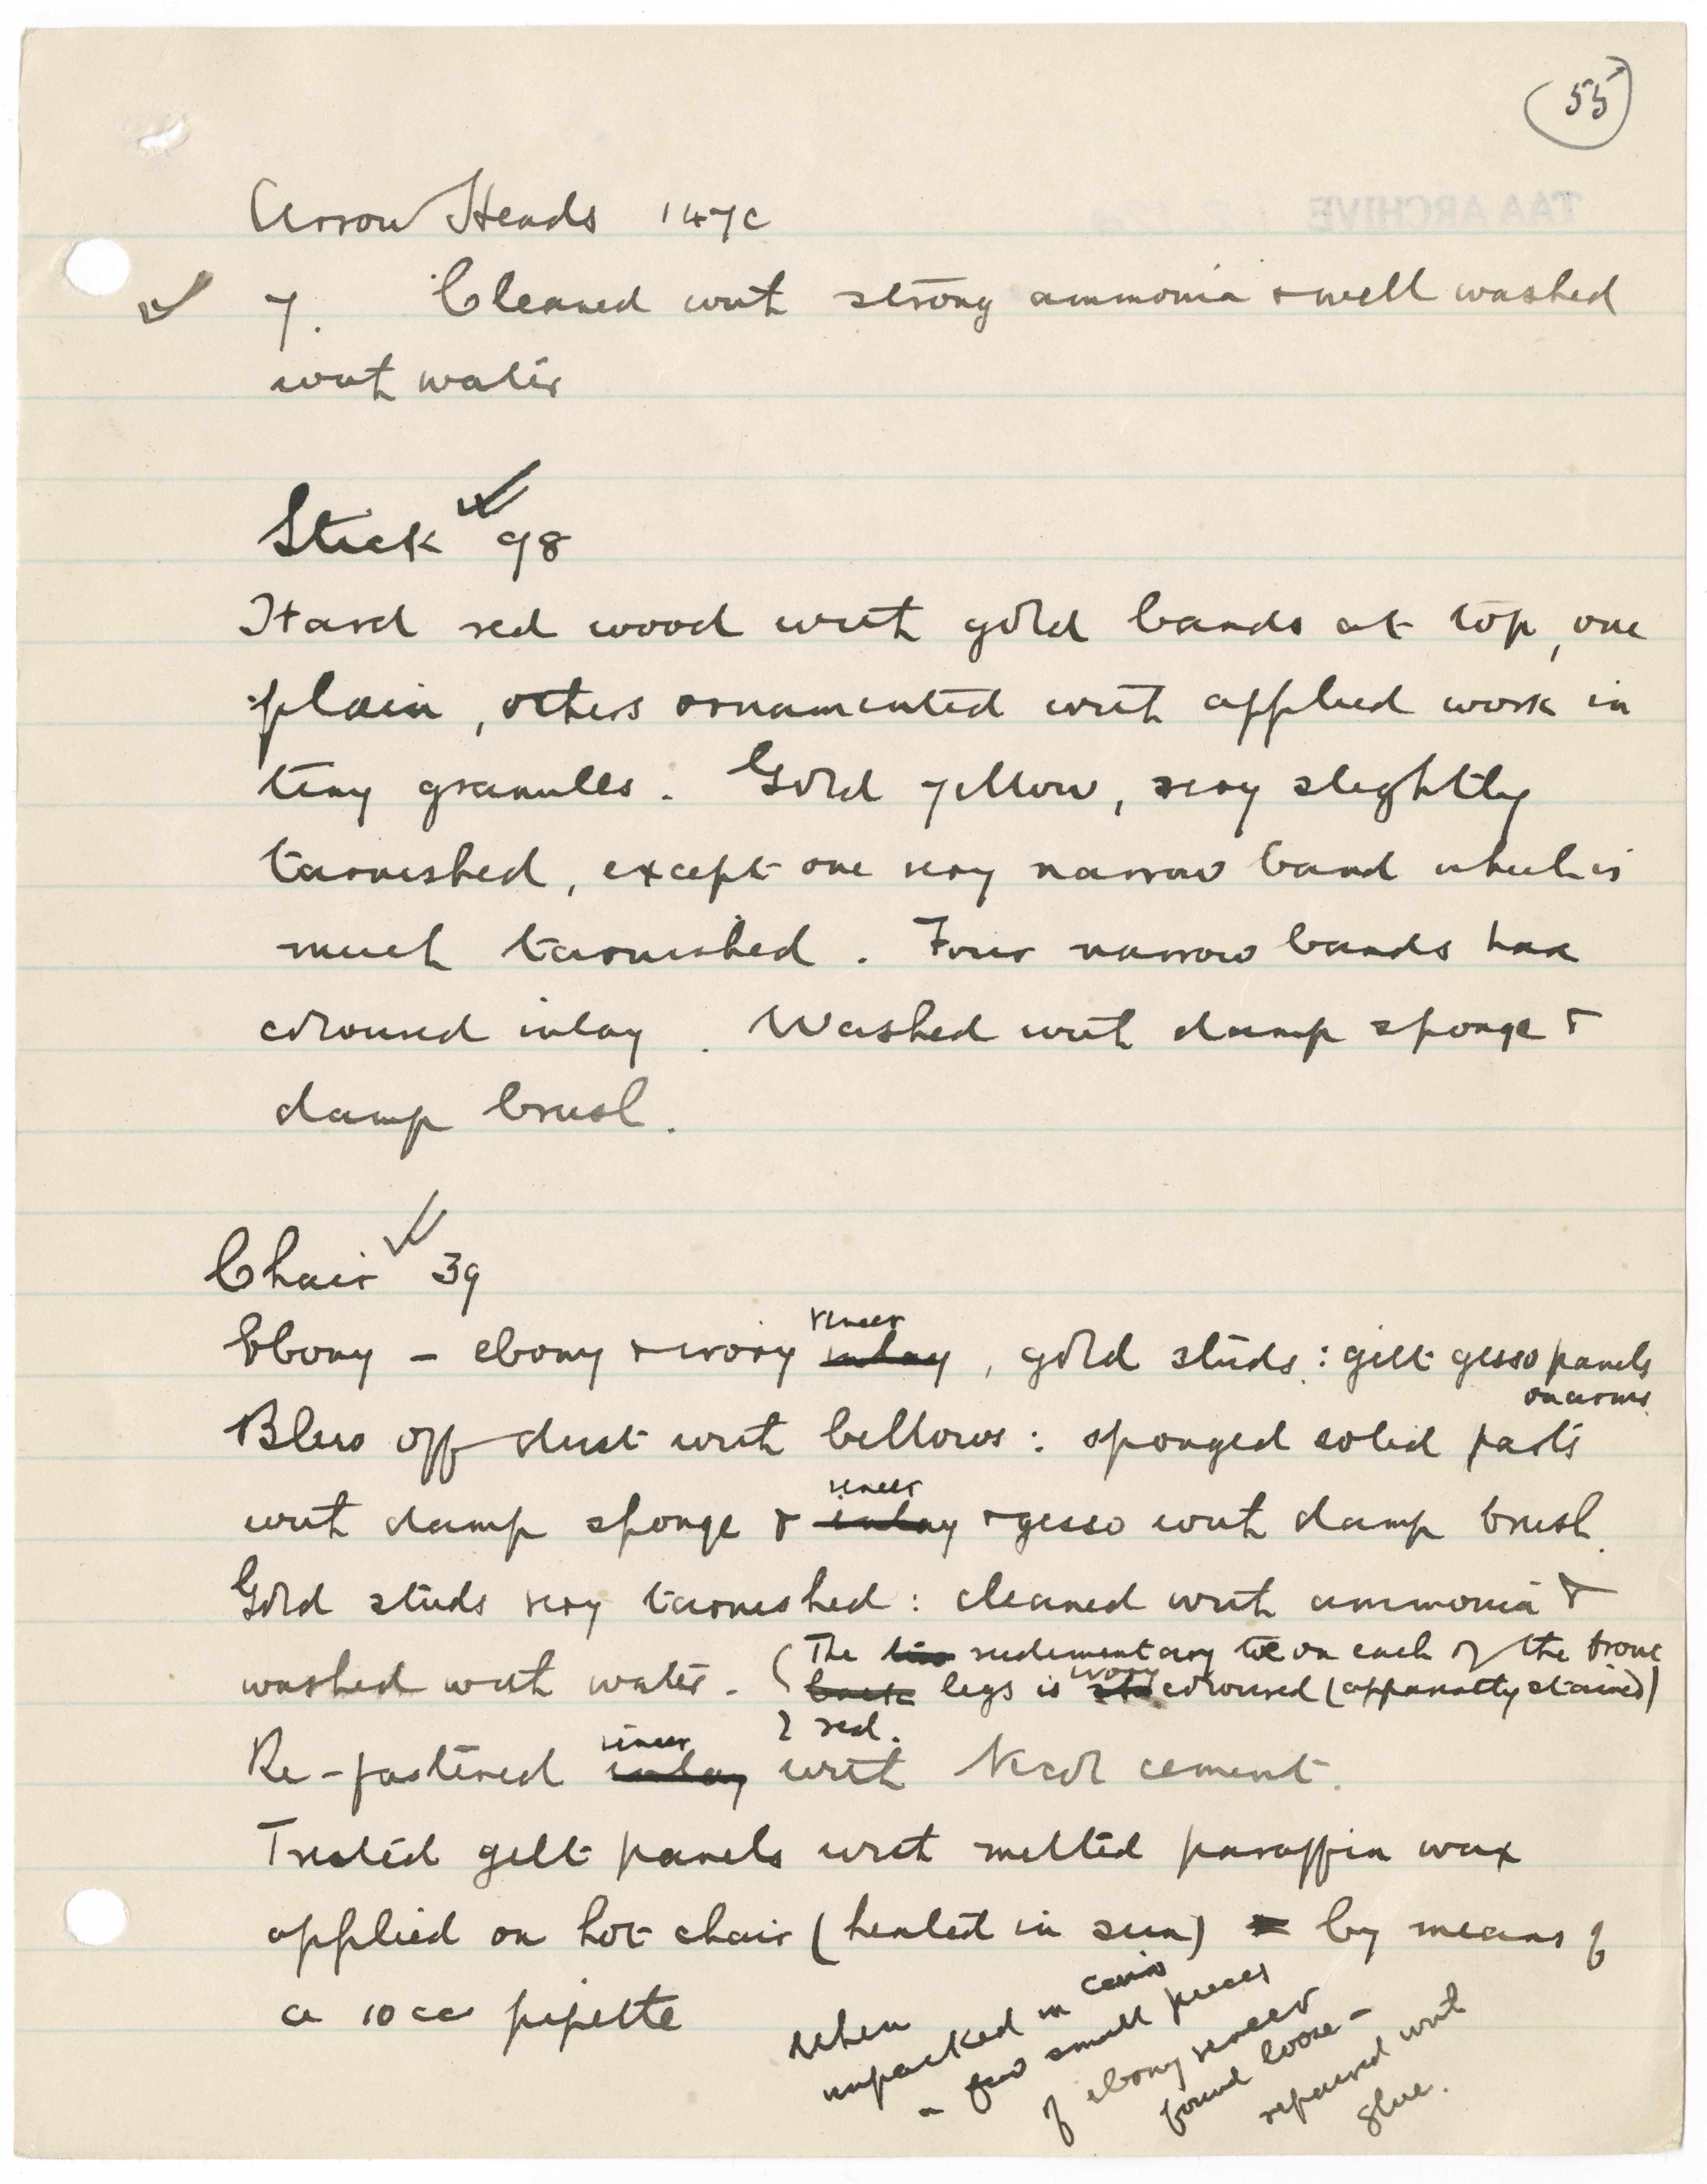 55
TAA ARCHIVE
Arrow Heads 147c
7. Cleaned with strong ammonia & well washed
with water
Stick 98
Hard red wood with gold bands at top, one
plain, others ornamented with applied work in
tiny granules. Gold yellow, very slightly
tarnished, except one very narrow band which is
much tarnished. Four narrow bands have
coloured inlay. Washed with damp sponge &
damp brush.
Chair 39
veneer
Ebony - ebony & ivory inlay, gold studs: gilt gesso panels
on arms.
Blew off dust with bellows: sponged solid parts
veneer
with damp sponge & inlay & gesso with damp brush.
Gold studs very tarnished: cleaned with ammonia &
(The rudimentary toe on each of the front
washed with water.
ivory
back legs is coloured (apparently stained)
red.
veneer
Re-fastened inlay with Necol cement.
Treated gilt panels with melted paraffin wax
applied on hot chair (heated in sun) by means of
a 10cc pipette
When
unpacked in Cairo
a few small pieces
of ebony veneer
found loose -
repaired with
glue.